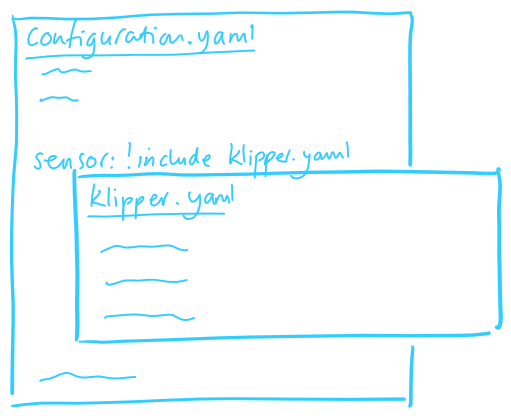 Configuration.yaml
sensor: !include klipper.yaml
klipper.yaml